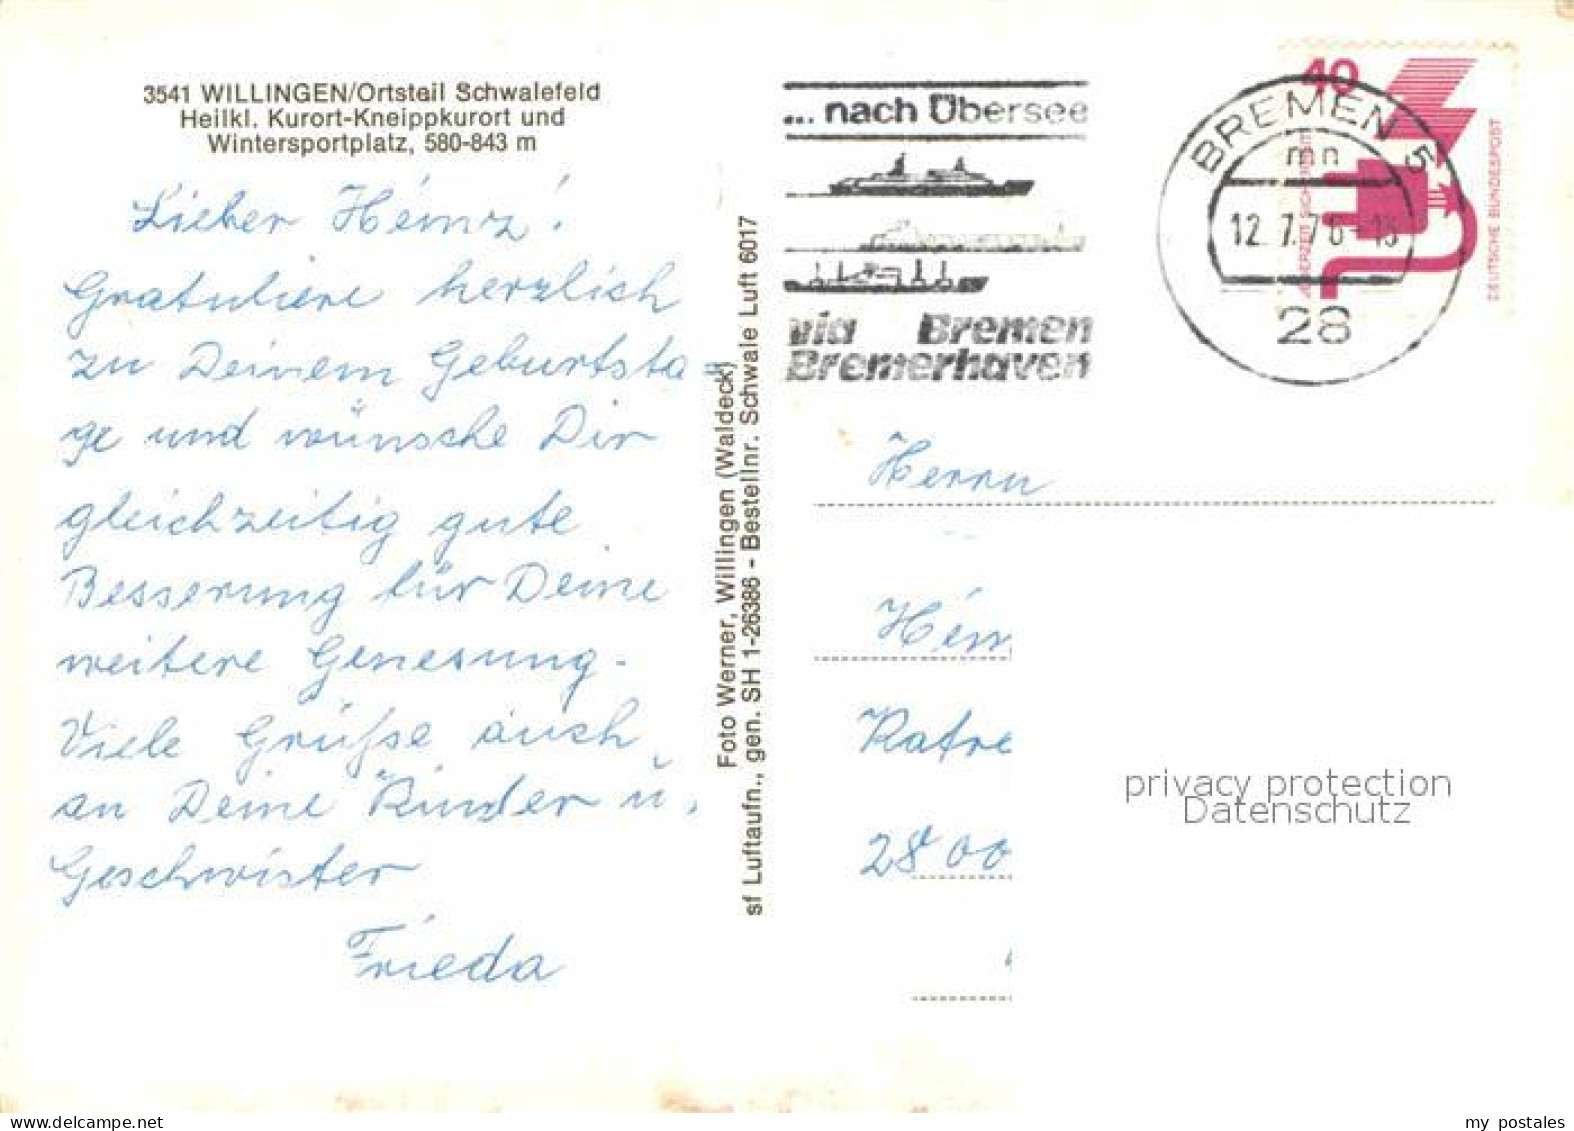 3541 WILLINGEN/Ortsteil Schwalefeld
Heilkl. Kurort-Kneippkurort und
Wintersportplatz, 580-843 m
Lieber Heinz!
Gratuliere herzlich
zu Deinem Geburtsta=
ge und wünsche Dir
gleichzeitig gute
Besserung für Deine
weitere Genesung.
Viele Grüße auch
an Deine Kinder u.
Geschwister
Frieda
Foto Werner, Willingen (Waldeck)
sf Luftaufn., gen. SH 1-26386 - Bestellnr. Schwale Luft 6017
... nach Übersee
via Bremen
Bremerhaven
BREMEN 5
mn
12.7.76-13
28
40
JEDERZEIT SICHERHEIT
DEUTSCHE BUNDESPOST
Herrn
Hein
Katre
2800
privacy protection
Datenschutz
my postales